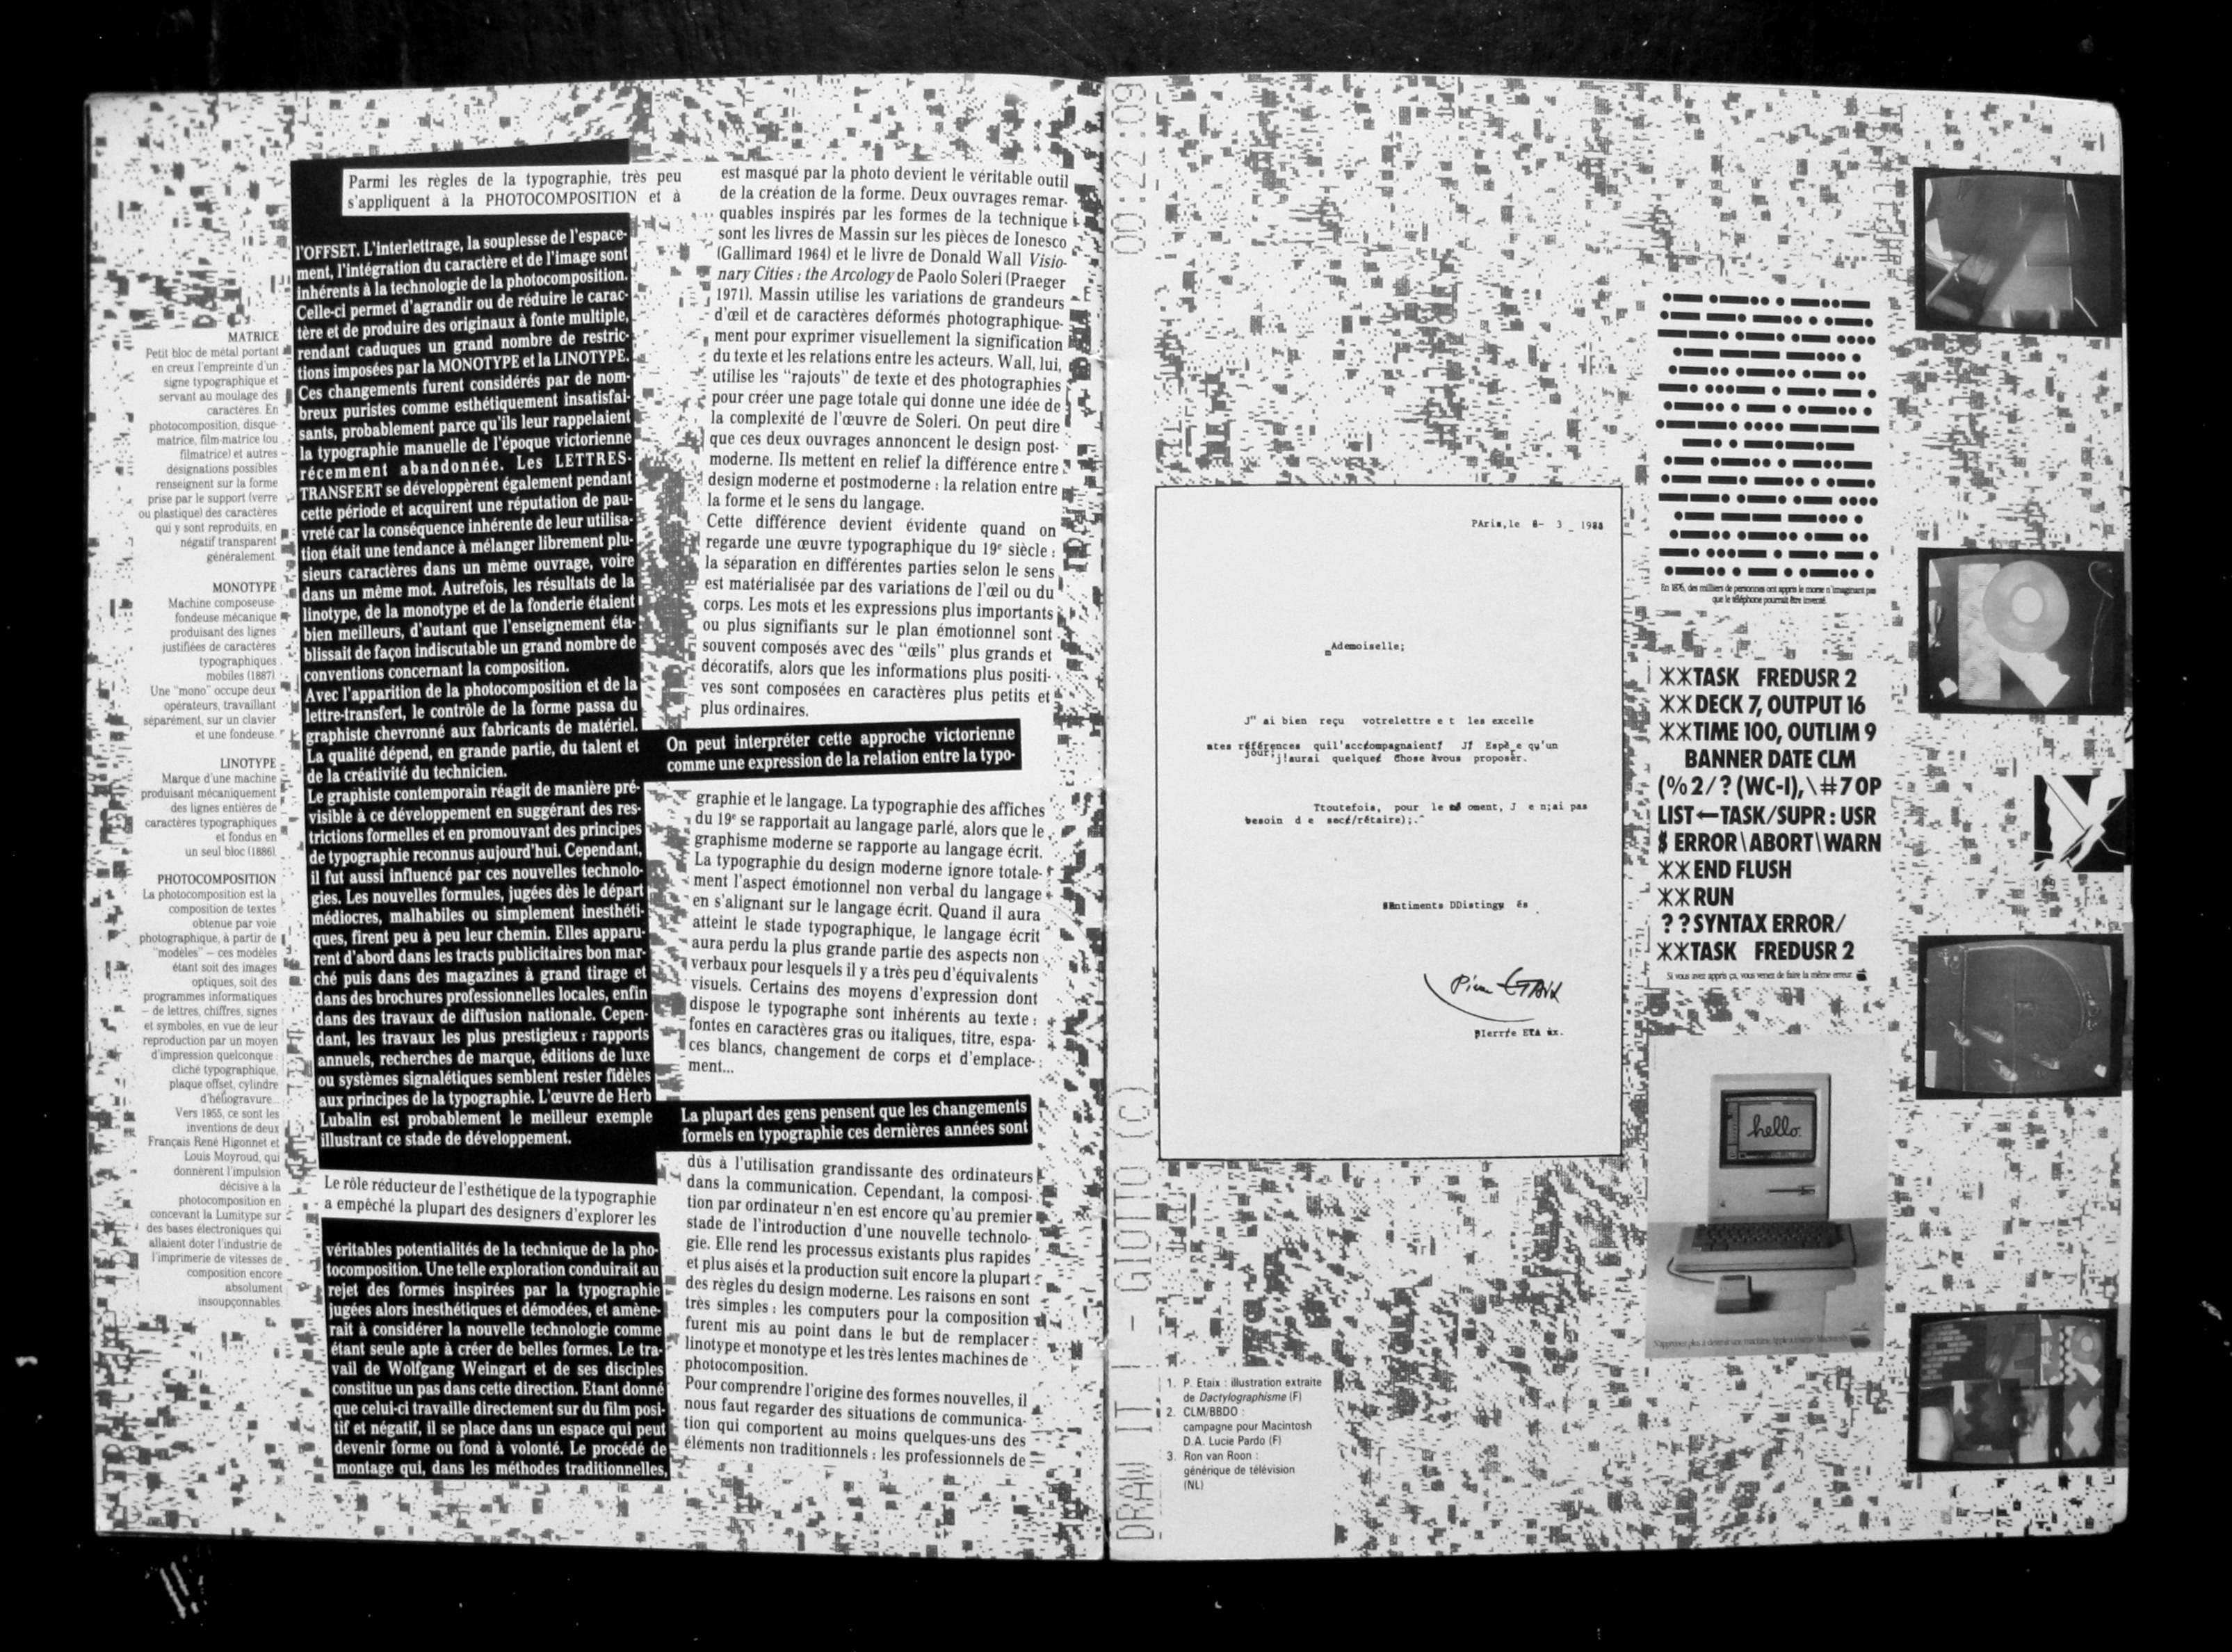 MATRICE
Petit bloc de métal portant
en creux l'empreinte d'un
signe typographique et
servant au moulage des
caractères. En
photocomposition, disque-
matrice, film-matrice (ou
filmatrice) et autres
désignations possibles
renseignent sur la forme
prise par le support (verre
ou plastique) des caractères
qui y sont reproduits, en
négatif transparent
généralement.
MONOTYPE
Machine composeuse-
fondeuse mécanique
produisant des lignes
justifiées de caractères
typographiques
mobiles (1887).
Une "mono" occupe deux
opérateurs, travaillant
séparément, sur un clavier
et une fondeuse.
LINOTYPE
Marque d'une machine
produisant mécaniquement
des lignes entières de
caractères typographiques
et fondus en
un seul bloc (1886).
PHOTOCOMPOSITION
La photocomposition est la
composition de textes
obtenue par voie
photographique, à partir de
"modèles" — ces modèles
étant soit des images
optiques, soit des
programmes informatiques
— de lettres, chiffres, signes
et symboles, en vue de leur
reproduction par un moyen
d'impression quelconque :
cliché typographique,
plaque offset, cylindre
d'héliogravure...
Vers 1955, ce sont les
inventions de deux
Français René Higonnet et
Louis Moyroud, qui
donnèrent l'impulsion
décisive à la
photocomposition en
concevant la Lumitype sur
des bases électroniques qui
allaient doter l'industrie de
l'imprimerie de vitesses de
composition encore
absolument
insoupçonnables.
Parmi les règles de la typographie, très peu
s'appliquent à la PHOTOCOMPOSITION et à
l'OFFSET. L'interlettrage, la souplesse de l'espace-
ment, l'intégration du caractère et de l'image sont
inhérents à la technologie de la photocomposition.
Celle-ci permet d'agrandir ou de réduire le carac-
tère et de produire des originaux à fonte multiple,
rendant caduques un grand nombre de restric-
tions imposées par la MONOTYPE et la LINOTYPE.
Ces changements furent considérés par de nom-
breux puristes comme esthétiquement insatisfai-
sants, probablement parce qu'ils leur rappelaient
la typographie manuelle de l'époque victorienne
récemment abandonnée. Les LETTRES-
TRANSFERT se développèrent également pendant
cette période et acquirent une réputation de pau-
vreté car la conséquence inhérente de leur utilisa-
tion était une tendance à mélanger librement plu-
sieurs caractères dans un même ouvrage, voire
dans un même mot. Autrefois, les résultats de la
linotype, de la monotype et de la fonderie étaient
bien meilleurs, d'autant que l'enseignement éta-
blissait de façon indiscutable un grand nombre de
conventions concernant la composition.
Avec l'apparition de la photocomposition et de la
lettre-transfert, le contrôle de la forme passa du
graphiste chevronné aux fabricants de matériel.
La qualité dépend, en grande partie, du talent et
de la créativité du technicien.
Le graphiste contemporain réagit de manière pré-
visible à ce développement en suggérant des res-
trictions formelles et en promouvant des principes
de typographie reconnus aujourd'hui. Cependant,
il fut aussi influencé par ces nouvelles technolo-
gies. Les nouvelles formules, jugées dès le départ
médiocres, malhabiles ou simplement inesthéti-
ques, firent peu à peu leur chemin. Elles apparu-
rent d'abord dans les tracts publicitaires bon mar-
ché puis dans des magazines à grand tirage et
dans des brochures professionnelles locales, enfin
dans des travaux de diffusion nationale. Cepen-
dant, les travaux les plus prestigieux : rapports
annuels, recherches de marque, éditions de luxe
ou systèmes signalétiques semblent rester fidèles
aux principes de la typographie. L'œuvre de Herb
Lubalin est probablement le meilleur exemple
illustrant ce stade de développement.
Le rôle réducteur de l'esthétique de la typographie
a empêché la plupart des designers d'explorer les
véritables potentialités de la technique de la pho-
tocomposition. Une telle exploration conduirait au
rejet des formes inspirées par la typographie
jugées alors inesthétiques et démodées, et amène-
rait à considérer la nouvelle technologie comme
étant seule apte à créer de belles formes. Le tra-
vail de Wolfgang Weingart et de ses disciples
constitue un pas dans cette direction. Etant donné
que celui-ci travaille directement sur du film posi-
tif et négatif, il se place dans un espace qui peut
devenir forme ou fond à volonté. Le procédé de
montage qui, dans les méthodes traditionnelles,
est masqué par la photo devient le véritable outil
de la création de la forme. Deux ouvrages remar-
quables inspirés par les formes de la technique
sont les livres de Massin sur les pièces de Ionesco
(Gallimard 1964) et le livre de Donald Wall Visio-
nary Cities : the Arcology de Paolo Soleri (Praeger
1971). Massin utilise les variations de grandeurs
d'œil et de caractères déformés photographique-
ment pour exprimer visuellement la signification
du texte et les relations entre les acteurs. Wall, lui,
utilise les "rajouts" de texte et des photographies
pour créer une page totale qui donne une idée de
la complexité de l'œuvre de Soleri. On peut dire
que ces deux ouvrages annoncent le design post-
moderne. Ils mettent en relief la différence entre
design moderne et postmoderne : la relation entre
la forme et le sens du langage.
Cette différence devient évidente quand on
regarde une œuvre typographique du 19e siècle :
la séparation en différentes parties selon le sens
est matérialisée par des variations de l'œil ou du
corps. Les mots et les expressions plus importants
ou plus signifiants sur le plan émotionnel sont
souvent composés avec des "œils" plus grands et
décoratifs, alors que les informations plus positi-
ves sont composées en caractères plus petits et
plus ordinaires.
On peut interpréter cette approche victorienne
comme une expression de la relation entre la typo-
graphie et le langage. La typographie des affiches
du 19e se rapportait au langage parlé, alors que le
graphisme moderne se rapporte au langage écrit.
La typographie du design moderne ignore totale-
ment l'aspect émotionnel non verbal du langage
en s'alignant sur le langage écrit. Quand il aura
atteint le stade typographique, le langage écrit
aura perdu la plus grande partie des aspects non
verbaux pour lesquels il y a très peu d'équivalents
visuels. Certains des moyens d'expression dont
dispose le typographe sont inhérents au texte :
fontes en caractères gras ou italiques, titre, espa-
ces blancs, changement de corps et d'emplace-
ment...
La plupart des gens pensent que les changements
formels en typographie ces dernières années sont
dûs à l'utilisation grandissante des ordinateurs
dans la communication. Cependant, la composi-
tion par ordinateur n'en est encore qu'au premier
stade de l'introduction d'une nouvelle technolo-
gie. Elle rend les processus existants plus rapides
et plus aisés et la production suit encore la plupart
des règles du design moderne. Les raisons en sont
très simples : les computers pour la composition
furent mis au point dans le but de remplacer
linotype et monotype et les très lentes machines de
photocomposition.
Pour comprendre l'origine des formes nouvelles, il
nous faut regarder des situations de communica-
tion qui comportent au moins quelques-uns des
éléments non traditionnels : les professionnels de
00:22:09
DRAW IT 1 - GIOTTO (c)
PAris,le 6- 3 _ 1988
mAdemoiselle;
J" ai bien reçu votrelettre e t les excelle
ntes références quil'accompagnaient! J! Espè e qu'un
jour,j!aurai quelques Chose àvous proposer.
Ttoutefois, pour le moment, J e n;ai pas
besoin d e sec/rétaire);.^
Sentiments DDistingu és
Pierre ETAIX
pIerrre ETA ix.
1. P. Etaix : illustration extraite
de Dactylographisme (F)
2. CLM/BBDO :
campagne pour Macintosh
D.A. Lucie Pardo (F)
3. Ron van Roon :
générique de télévision
(NL)
En 1876, des milliers de personnes ont appris le morse n'imaginant pas
que le téléphone pourrait être inventé.
**TASK FREDUSR 2
**DECK 7, OUTPUT 16
**TIME 100, OUTLIM 9
BANNER DATE CLM
(%2/?(WC-I),\#7OP
LIST←TASK/SUPR : USR
$ ERROR\ABORT\WARN
**END FLUSH
**RUN
??SYNTAX ERROR/
**TASK FREDUSR 2
Si vous avez appris ça, vous venez de faire la même erreur.
hello.
N'apprenez plus à devenir une machine, Apple a inventé Macintosh.